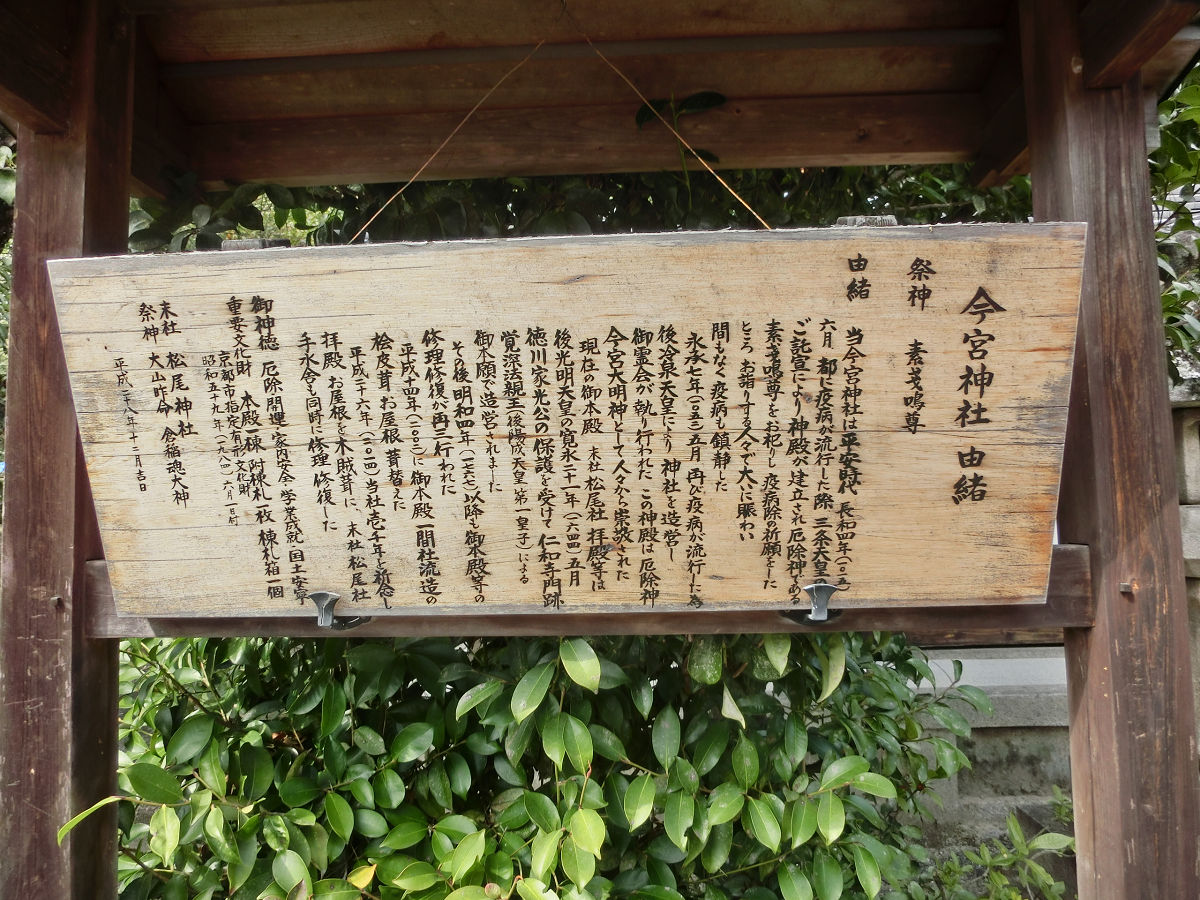 今宮神社 由緒
祭神 素戔嗚尊
由緒
当今宮神社は平安時代 長和四年(一〇一五)
六月 都に疫病が流行した際 三条天皇の
ご託宣により神殿が建立され厄除神である
素戔嗚尊をお祀りし 疫病除の祈願をした
ところ お詣りする人々で大いに賑わい
間もなく疫病も鎮静した
永承七年(一〇五二)五月 再び疫病が流行した為
後冷泉天皇により 神社を造営し
御霊会が執り行われた この神殿は厄除神
今宮大明神として人々から崇敬された
現在の御本殿 末社 松尾社 拝殿等は
後光明天皇の寛永二十一年(一六四四)五月
徳川家光公の保護を受けて 仁和寺門跡
覚深法親王(後陽成天皇 第一皇子)による
御本願で造営されました
その後 明和四年(一七六七)以降も御本殿等の
修理修復が再三行われた
平成十四年(二〇〇二)に御本殿 一間社流造の
桧皮葺 お屋根 葺替えた
平成二十六年(二〇一四)当社壱千年を祈念し
拝殿 お屋根を木賊葺に、末社松尾社
手水舎も同時に修理 修復した
御神徳 厄除開運 家内安全 学業成就 国土安寧
重要文化財 本殿一棟 附棟札一枚 棟札箱一個
京都市指定有形文化財
昭和五十九年(一九八四)六月一日付
末社 松尾神社
祭神 大山咋命 倉稲魂大神
平成二十八年十二月吉日